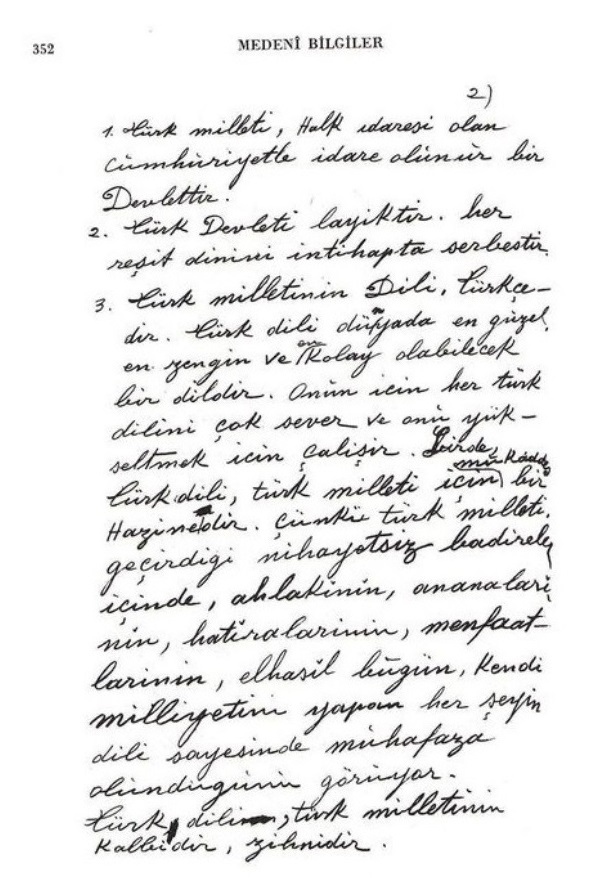 352
MEDENÎ BİLGİLER
2)
1. Türk milleti, Halk idaresi olan
Cümhüriyetle idare olünür bir
Devlettir.
2. Türk Devleti layiktir. her
reşit dinini intihapta serbestir.
3. Türk milletinin Dili, Türkçe-
dir. Türk dili dünyada en güzel,
en zengin ve en kolay olabilecek
bir dildir. Onün için her türk
dilini çok sever ve onü yük-
seltmek için çalişir. Birde,
Türk dili, türk milleti için mükaddes bir
Hazinedir. Çünkü türk milleti,
geçirdiği nihayetsiz badireler
içinde, ahlakinin, ananalari
nin, hatiralarinin, menfaat-
larinin, elhasil bügün, Kendi
milliyetini yapan her şeyin
dili sayesinde mühafaza
olündüğünü görüyor.
Türk dili, türk milletinin
Kalbidir, zihnidir.